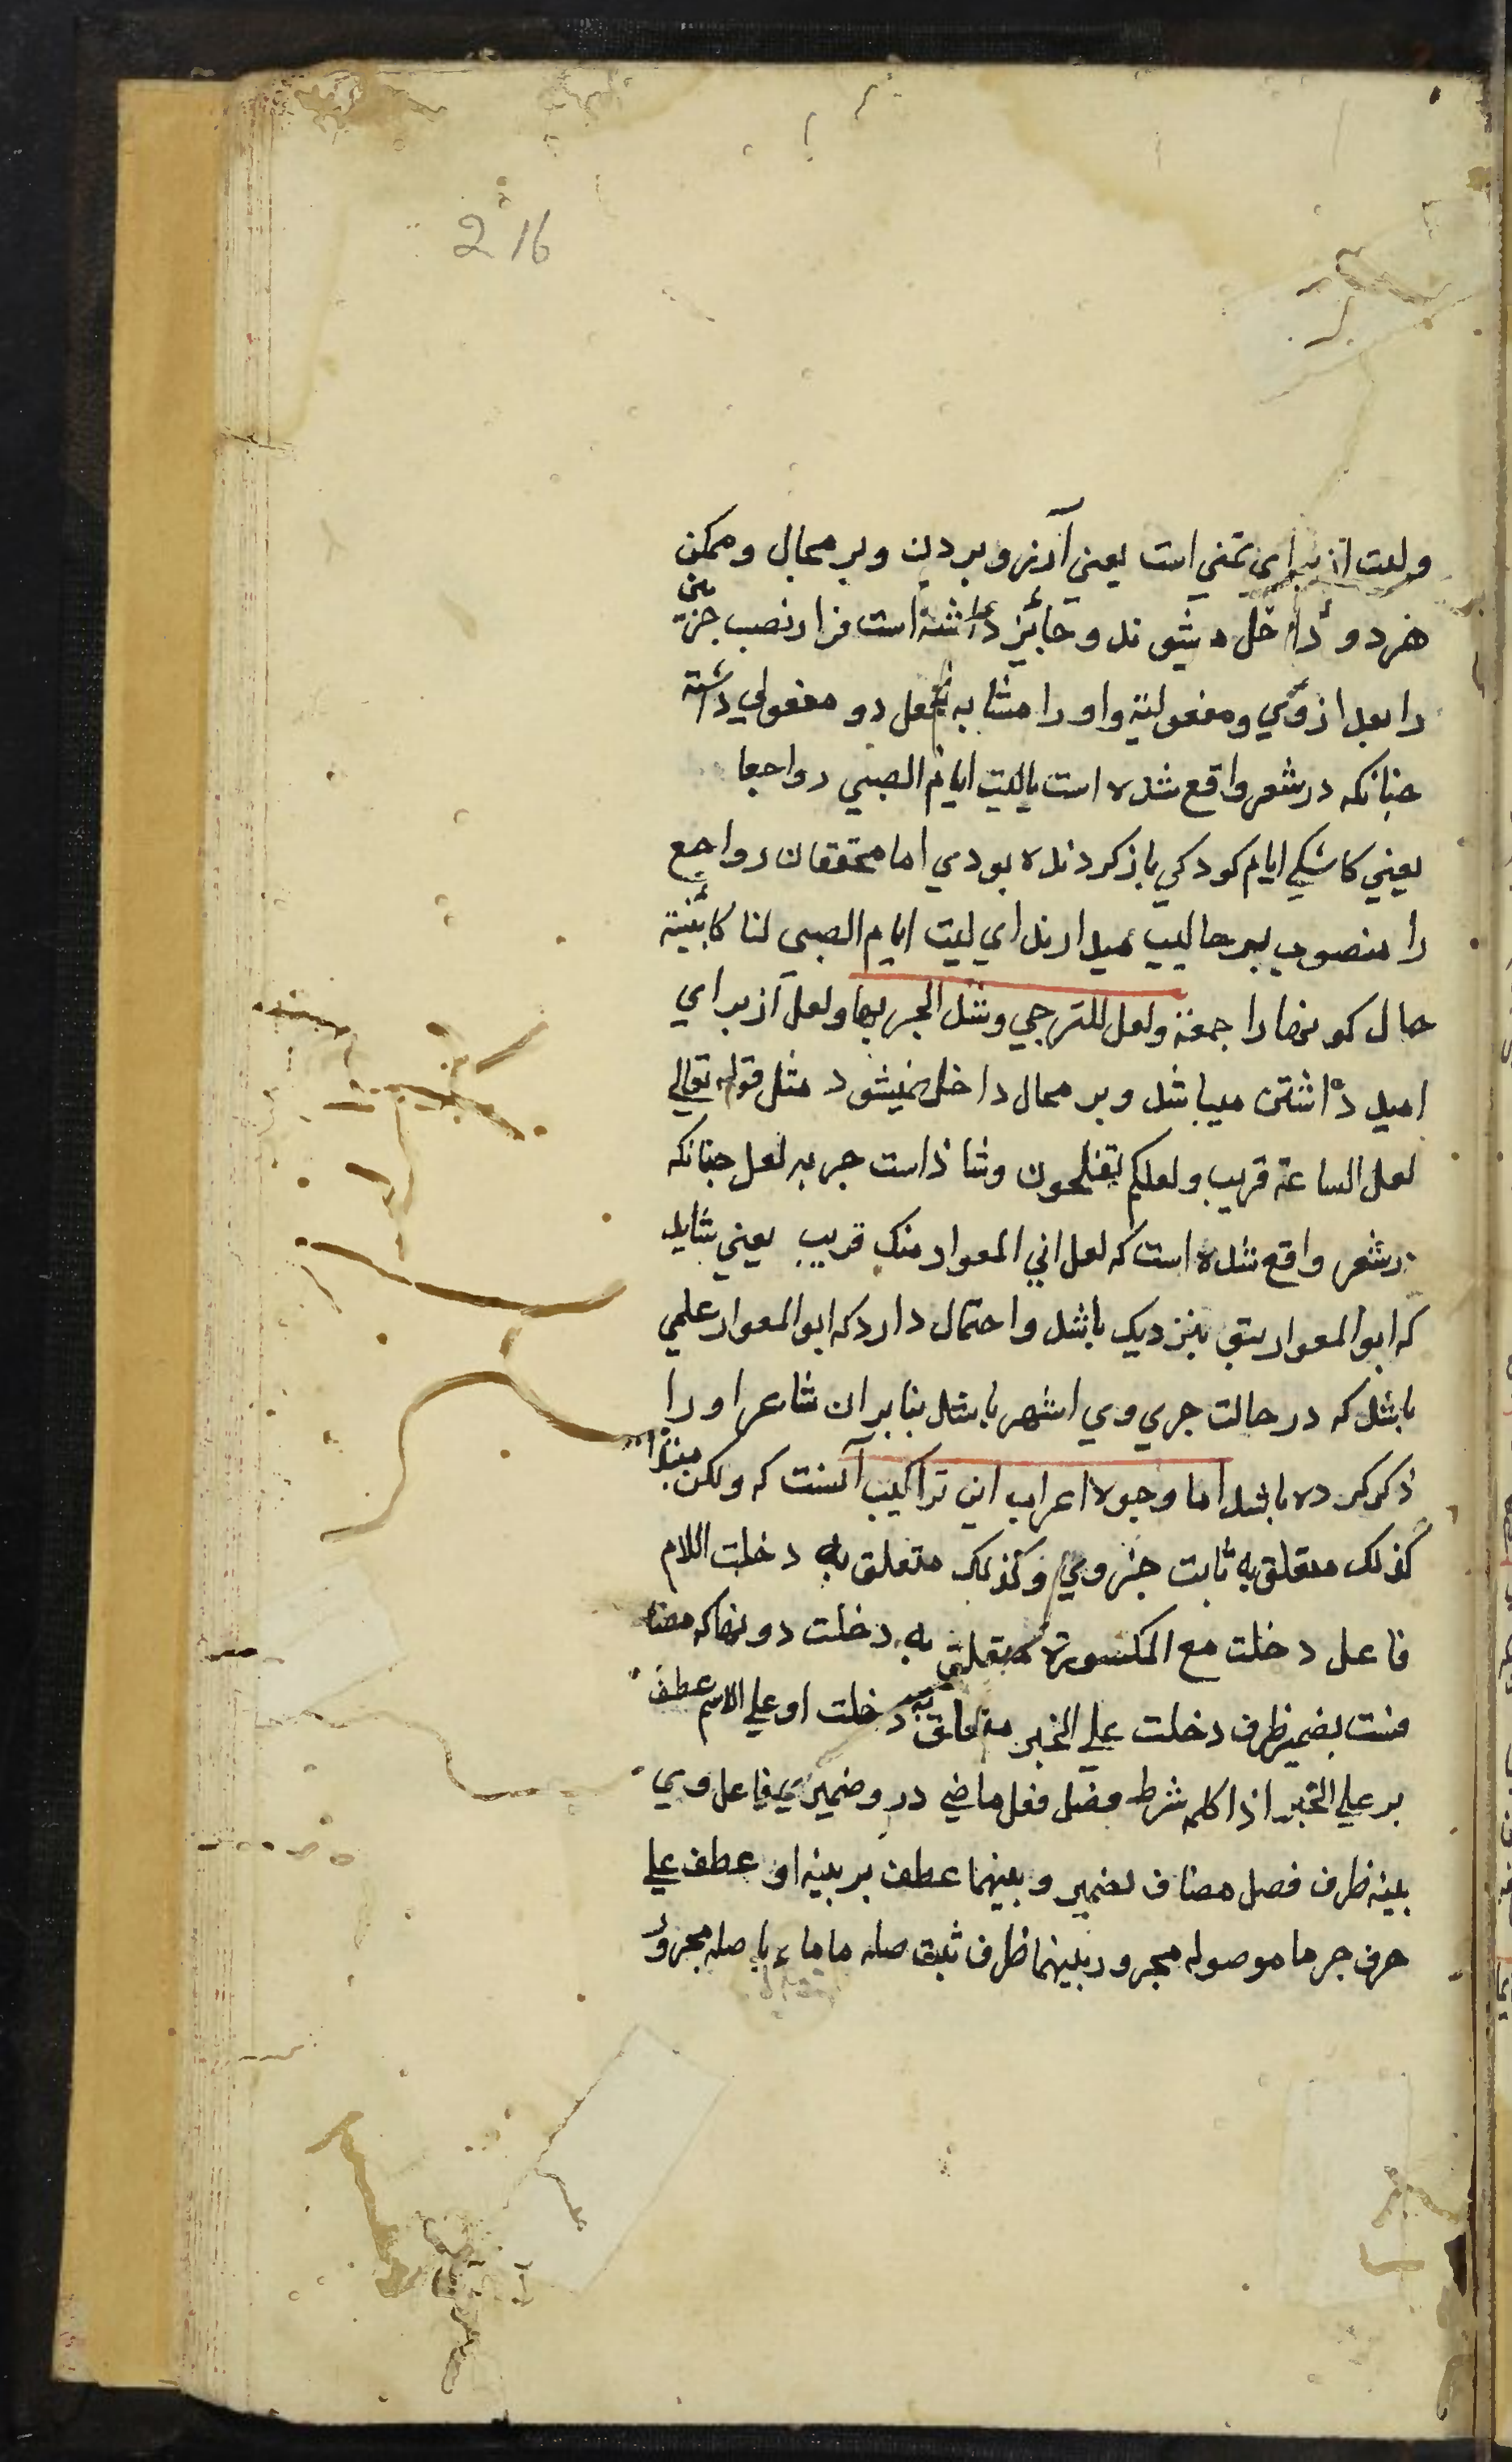 216
ولیت از برای تمنی است یعنی آرزو بردن وبر محال وممکن
هر دو داخل میشوند وجایز داشته است فرا نصب جزئین
را بعد از وی ومفعولیة واو را مشابه بفعل دو مفعولی داشته
چنانکه در شعر واقع شده است یالیت ایام الصبی رواجعا
یعنی کاشکی ایام کودکی باز گردنده بودی اما محققان رواجع
را منصوب بر حالیت میدارند ای لیت ایام الصبی لنا کائنة
حال کونها راجعة ولعل للترجي وشذ الجر بها ولعل از برای
امید داشتن میباشد وبر محال داخل نمیشود مثل قوله تعالی
لعل الساعة قریب ولعلکم تفلحون وشاذ است جر به لعل چنانکه
در شعر واقع شده است که لعل ابي المغوار منک قریب یعنی شاید
که ابو المغوار بتو نزدیک باشد واحتمال دارد که ابو المغوار علمی
باشد که در حالت جری وی اشهر باشد بنابران شاعر او را
ذکر کرده باشد اما وجوه اعراب این تراکیب آنست که ولکن مبتدا
کذلک متعلق به ثابت خبر وی وکذلک متعلق به دخلت اللام
فاعل دخلت مع المکسورة متعلق به دخلت دونها که مضا
فست بضمیر ظرف دخلت علی الخبر متعلق به دخلت او علی الاسم عطف
بر علی الخبر اذا کلمه شرط فصل فعل ماضی در و ضمیری فاعل وی
بینه ظرف فصل مضاف بضمیر وبینها عطف بر بینه او عطف علی
حرف جر ما موصوله مجرور بینهما ظرف ثبت صله ما ما با صله مجرور